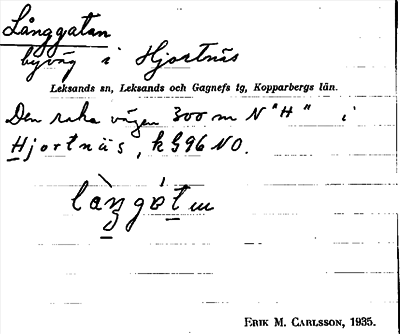 Långgatan
byväg i Hjortnäs
Leksands sn, Leksands och Gagnefs tg, Kopparbergs län.
Den raka vägen 300 m N "H" i
Hjortnäs, k 996 NO.
ERIK M. CARLSSON, 1935.